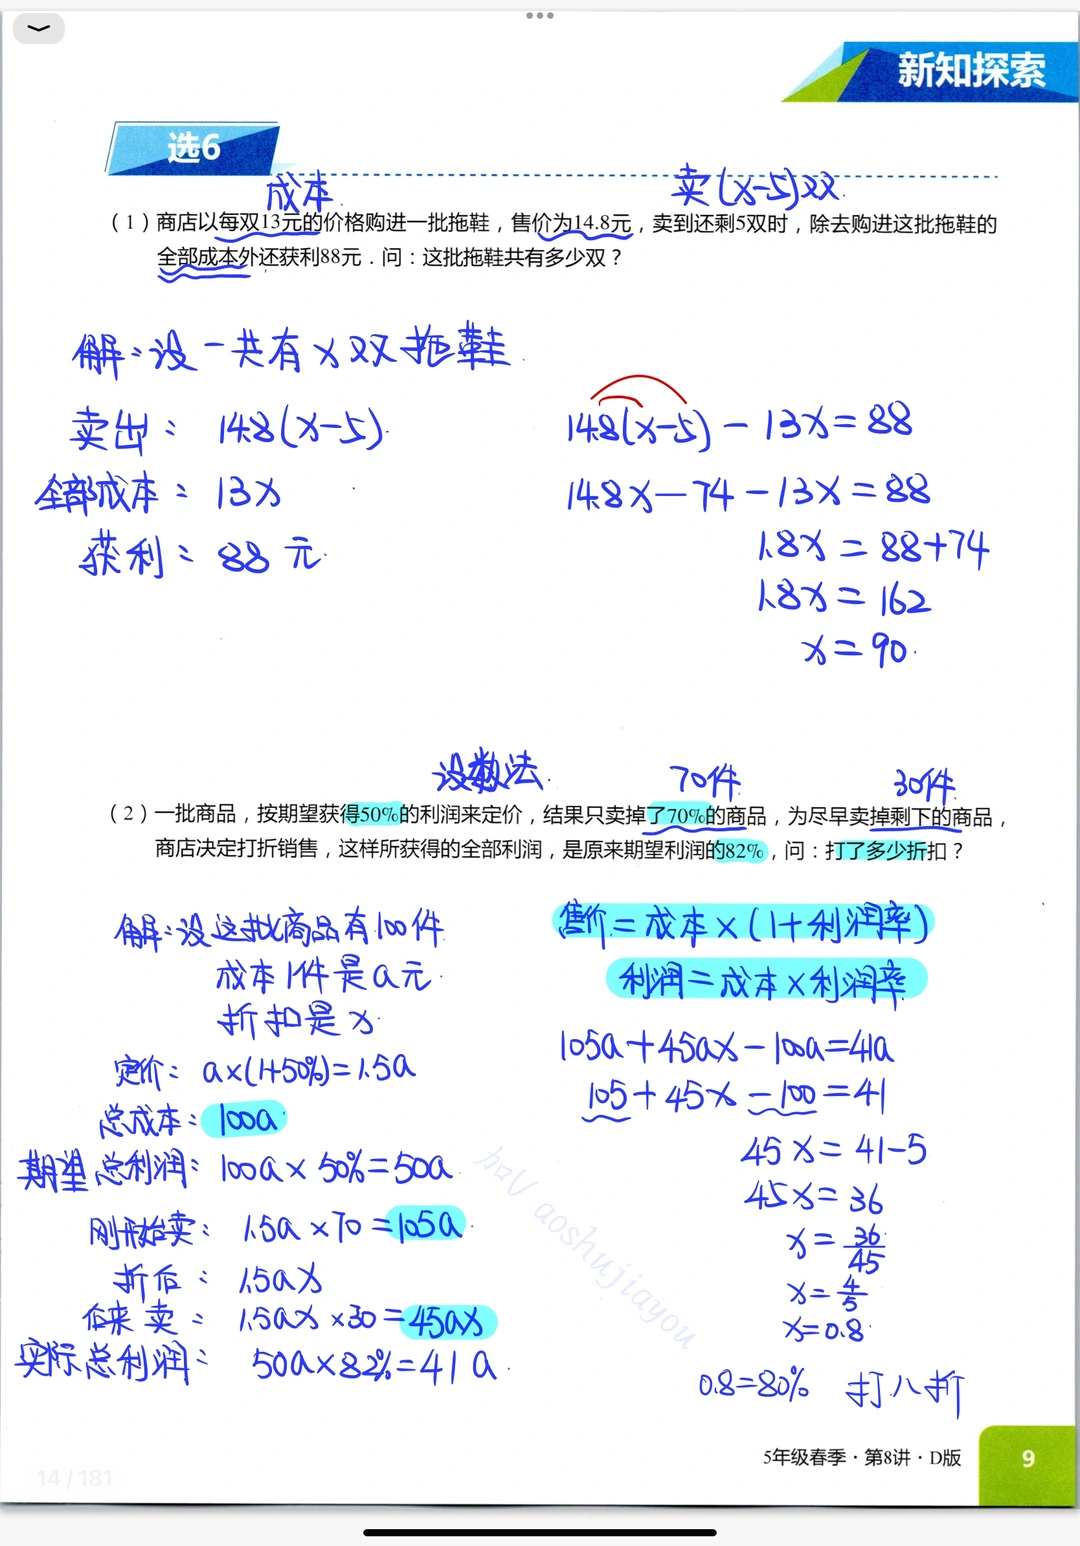 新知探索
选6
成本 卖(x-5)双
（1）商店以每双13元的价格购进一批拖鞋，售价为14.8元，卖到还剩5双时，除去购进这批拖鞋的
全部成本外还获利88元．问：这批拖鞋共有多少双？
解：设一共有x双拖鞋
卖出： 14.8(x-5)
全部成本： 13x
获利： 88元
14.8(x-5)-13x=88
14.8x-74-13x=88
1.8x=88+74
1.8x=162
x=90
设数法 70件 30件
（2）一批商品，按期望获得50%的利润来定价，结果只卖掉了70%的商品，为尽早卖掉剩下的商品，
商店决定打折销售，这样所获得的全部利润，是原来期望利润的82%，问：打了多少折扣？
解：设这批商品有100件
成本1件是a元
折扣是x
定价： a×(1+50%)=1.5a
总成本：100a
期望总利润：100a×50%=50a
刚开始卖： 1.5a×70=105a
折后： 1.5ax
后来卖： 1.5ax×30=45ax
实际总利润： 50a×82%=41a
售价=成本×(1+利润率)
利润=成本×利润率
105a+45ax-100a=41a
105+45x-100=41
45x=41-5
45x=36
x=36/45
x=4/5
x=0.8
0.8=80% 打八折
hzV aoshujiayou
5年级春季·第8讲·D版
9
14/181